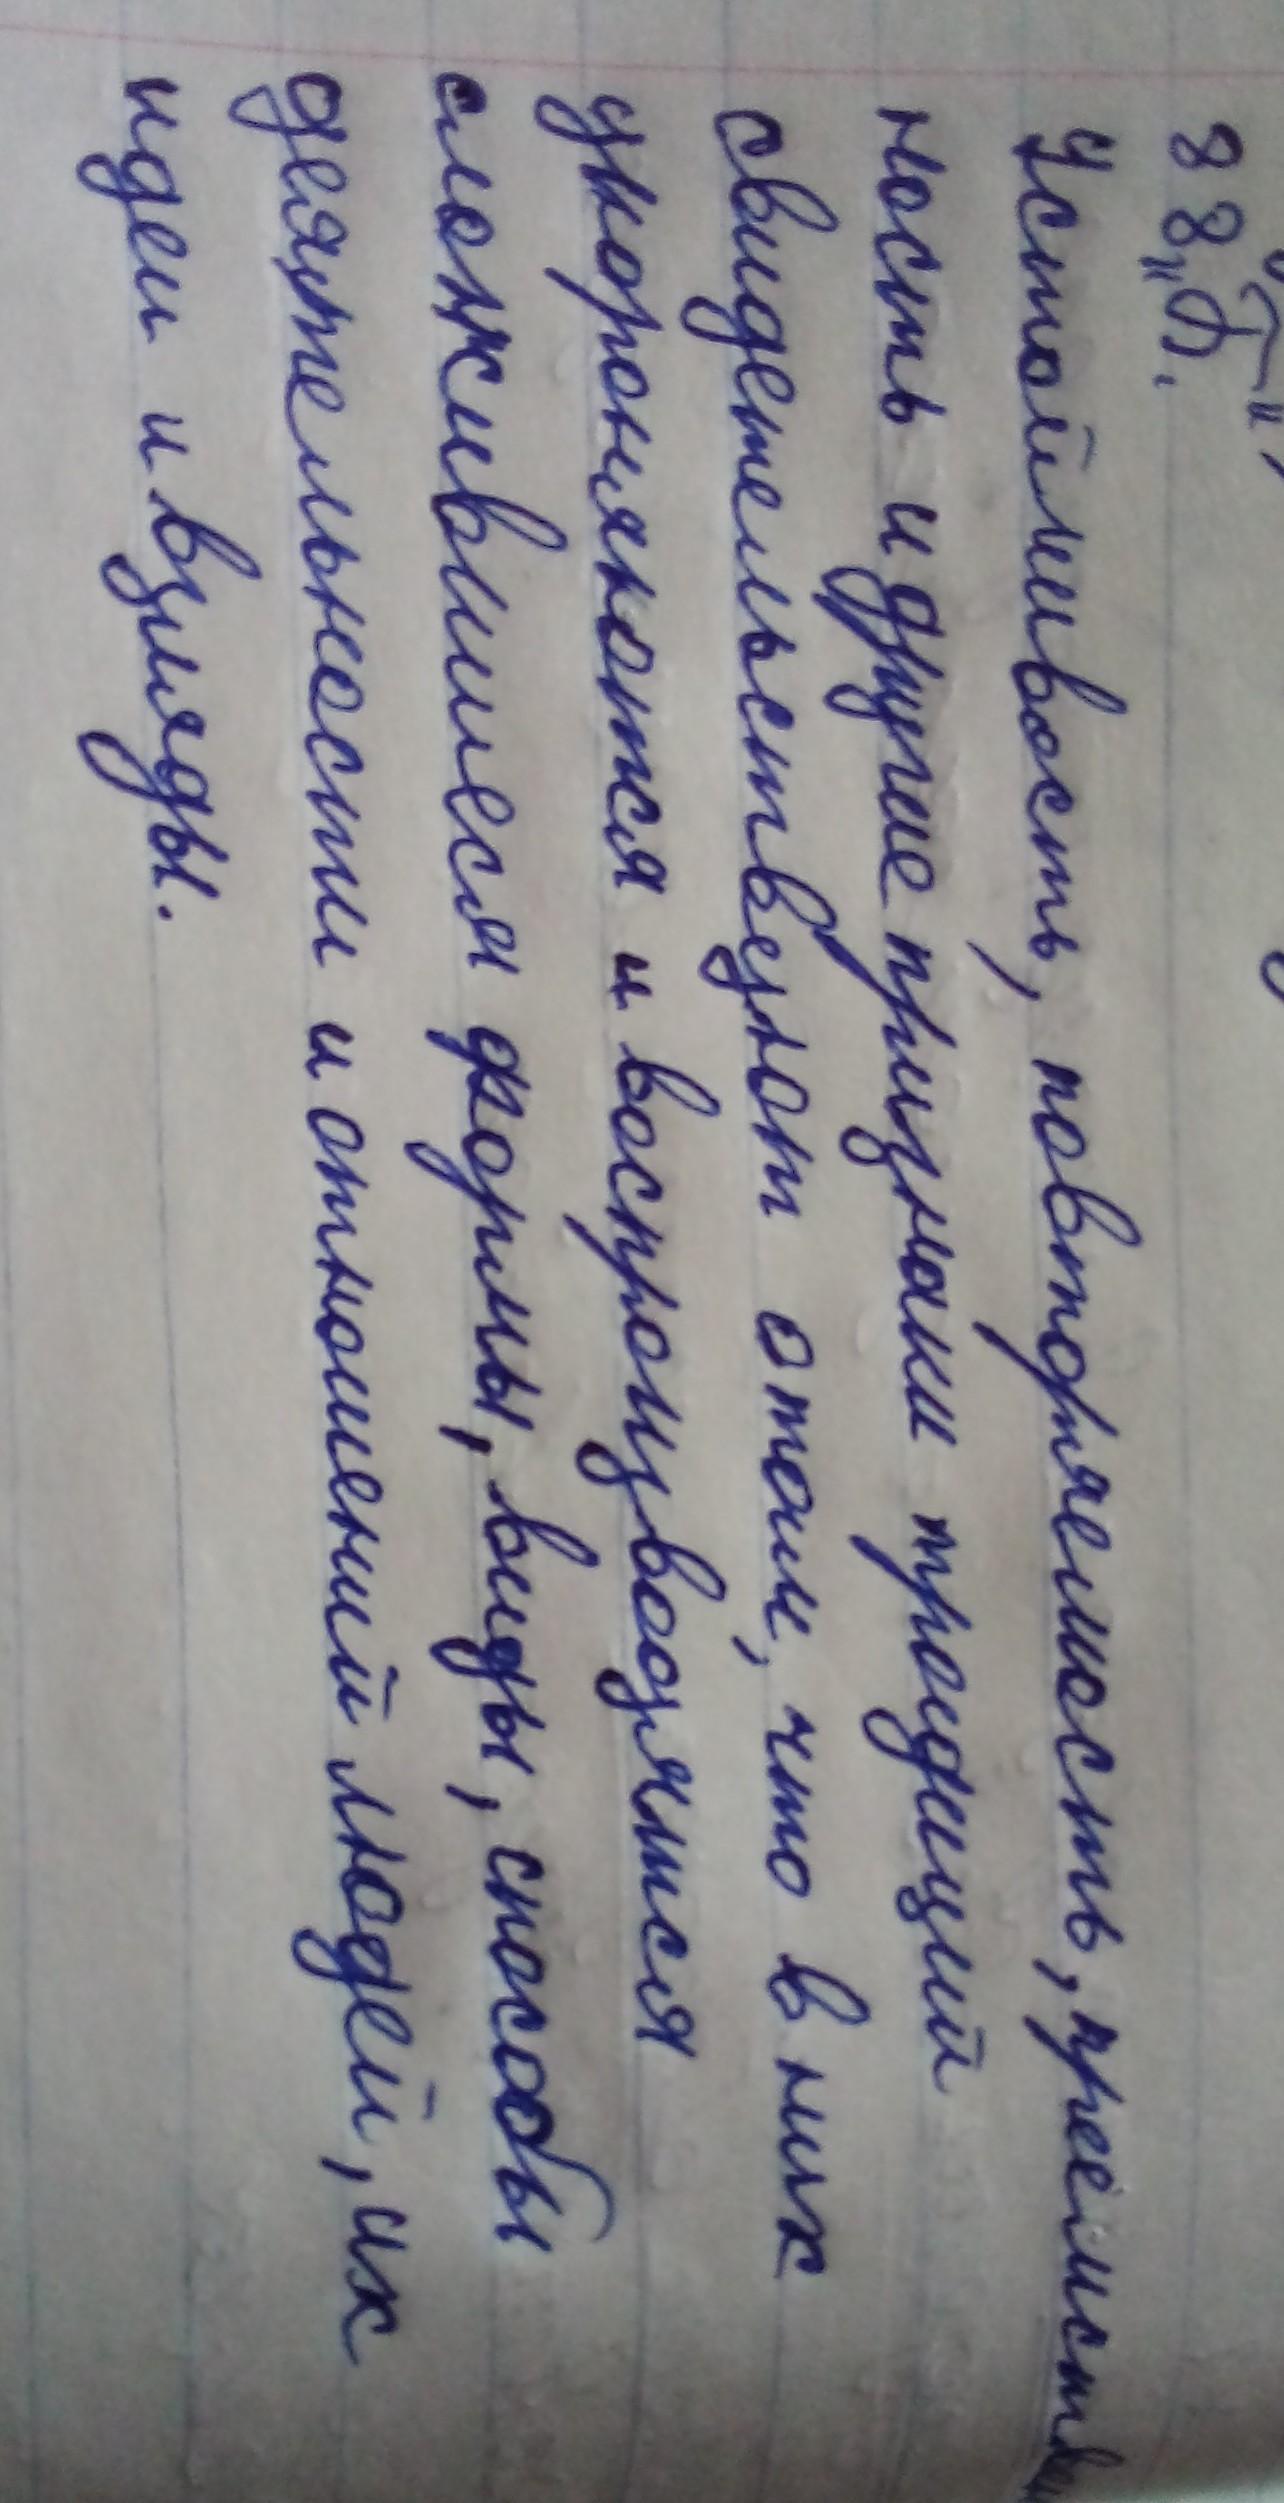 8 8 „Б".
Устойчивость, повторяемость, преемствен
ность и другие признаки традиций
свидетельствуют о том, что в них
укореняются и воспроизводятся
сложившиеся формы, виды, способы
деятельности и отношений людей, их
идеи и взгляды.